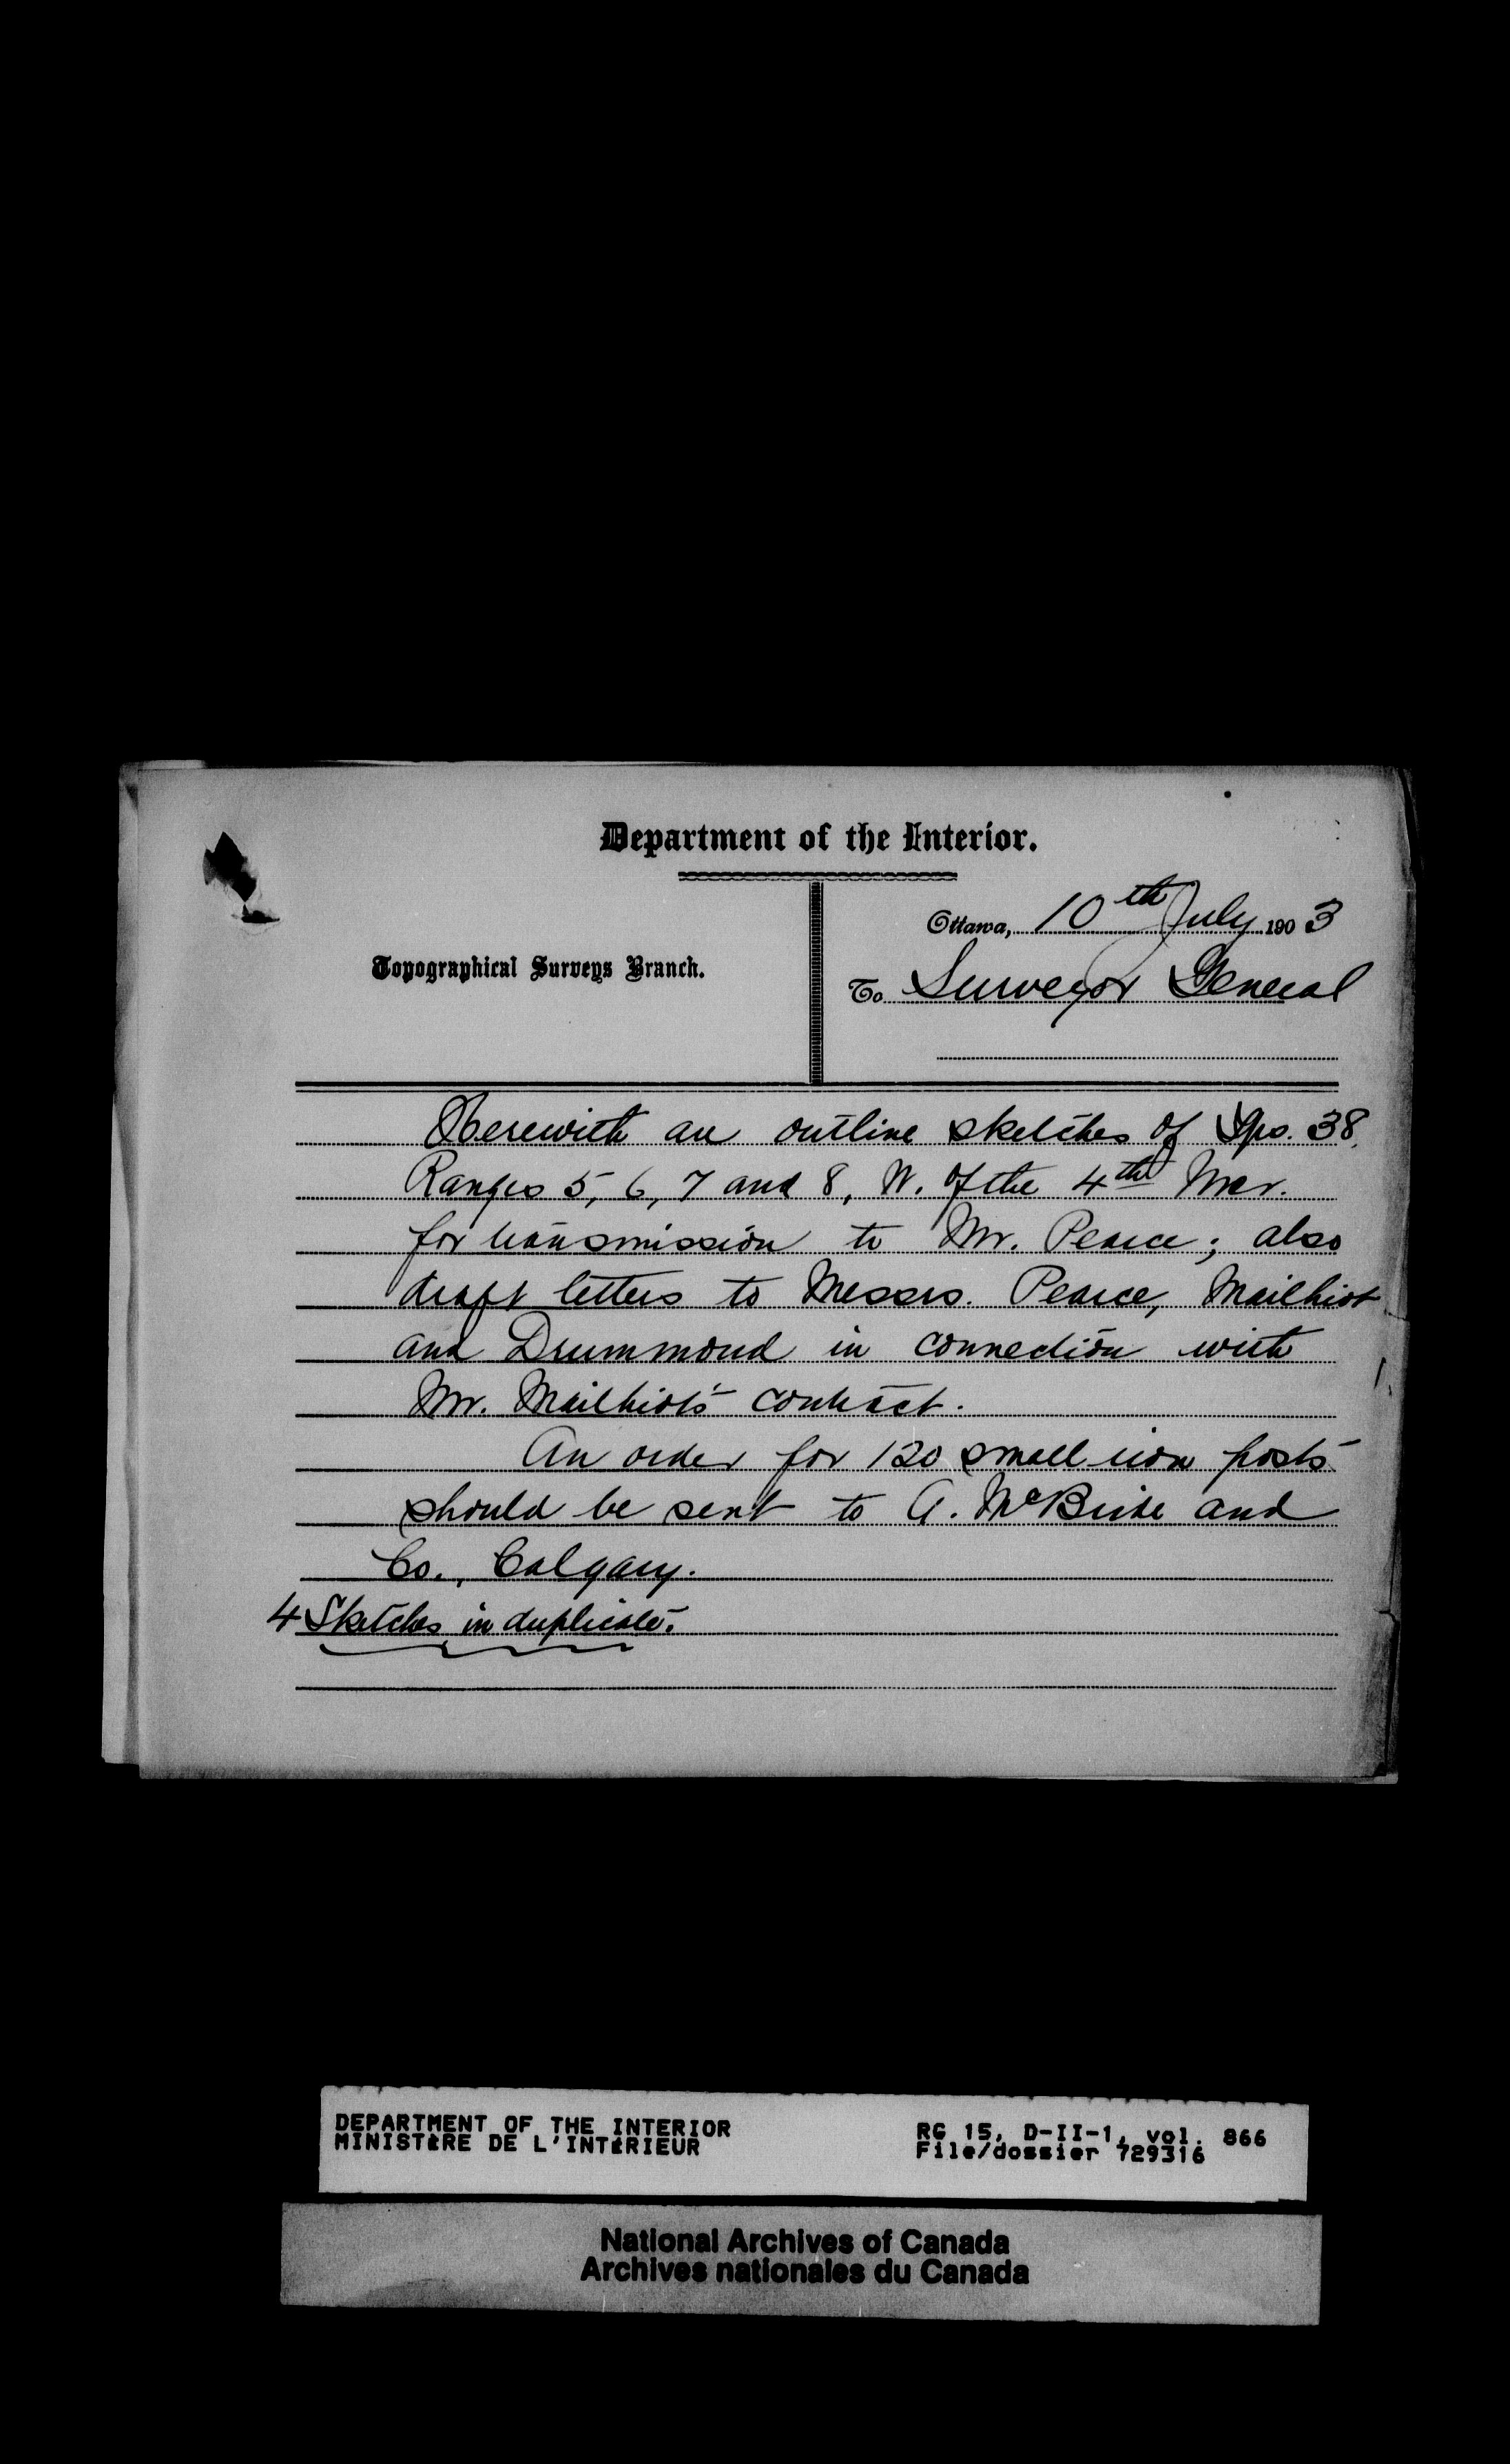 Department of the Interior.
Ottawa, 10th July 1903
Topographical Surveys Branch.
To Surveyor General
Herewith are outline sketches of Tps. 38,
Ranges 5, 6, 7 and 8, W. of the 4th Mer.
for transmission to Mr. Pearce; also
draft letters to Messrs. Pearce, Mailhiot
and Drummond in connection with
Mr. Mailhiot's contract.
An order for 120 small iron posts
should be sent to A. McBride and
Co., Calgary.
4 Sketches in duplicate.
DEPARTMENT OF THE INTERIOR
MINISTÈRE DE L'INTÉRIEUR
RG 15, D-II-1, vol. 866
File/dossier 729316
National Archives of Canada
Archives nationales du Canada